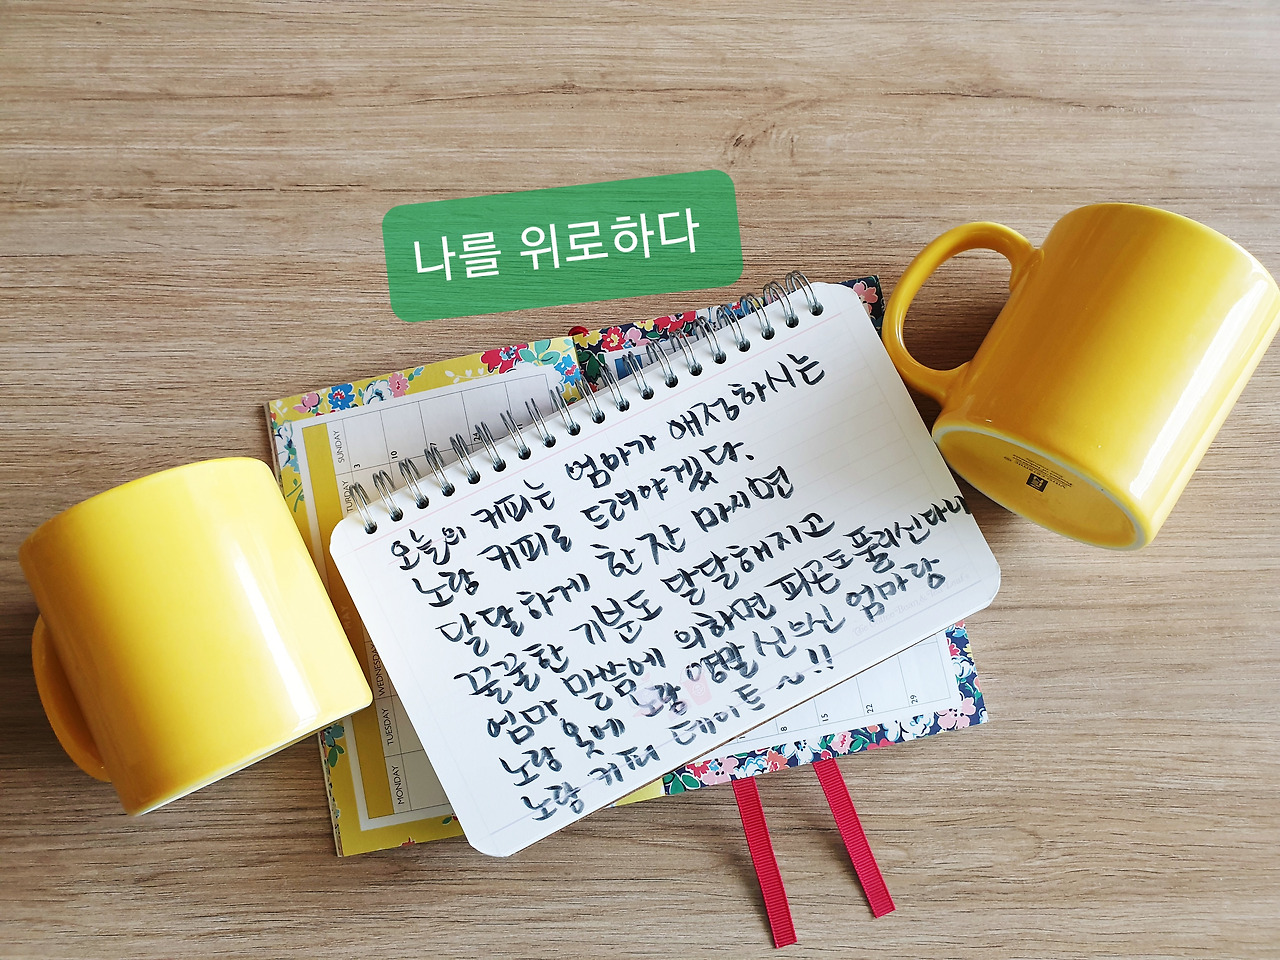 나를 위로하다
오늘의 커피는 엄마가 애정하시는
노랑 커피로 드려야겠다.
달달하게 한 잔 마시면
꿀꿀한 기분도 달달해지고
엄마 말씀에 의하면 피곤도 풀리신다니
노랑 옷에 노랑 양말 신으신 엄마랑
노랑 커피 데이트~!!
SUNDAY
3
10
WEDNESDAY
TUESDAY
MONDAY
8
15
22
29